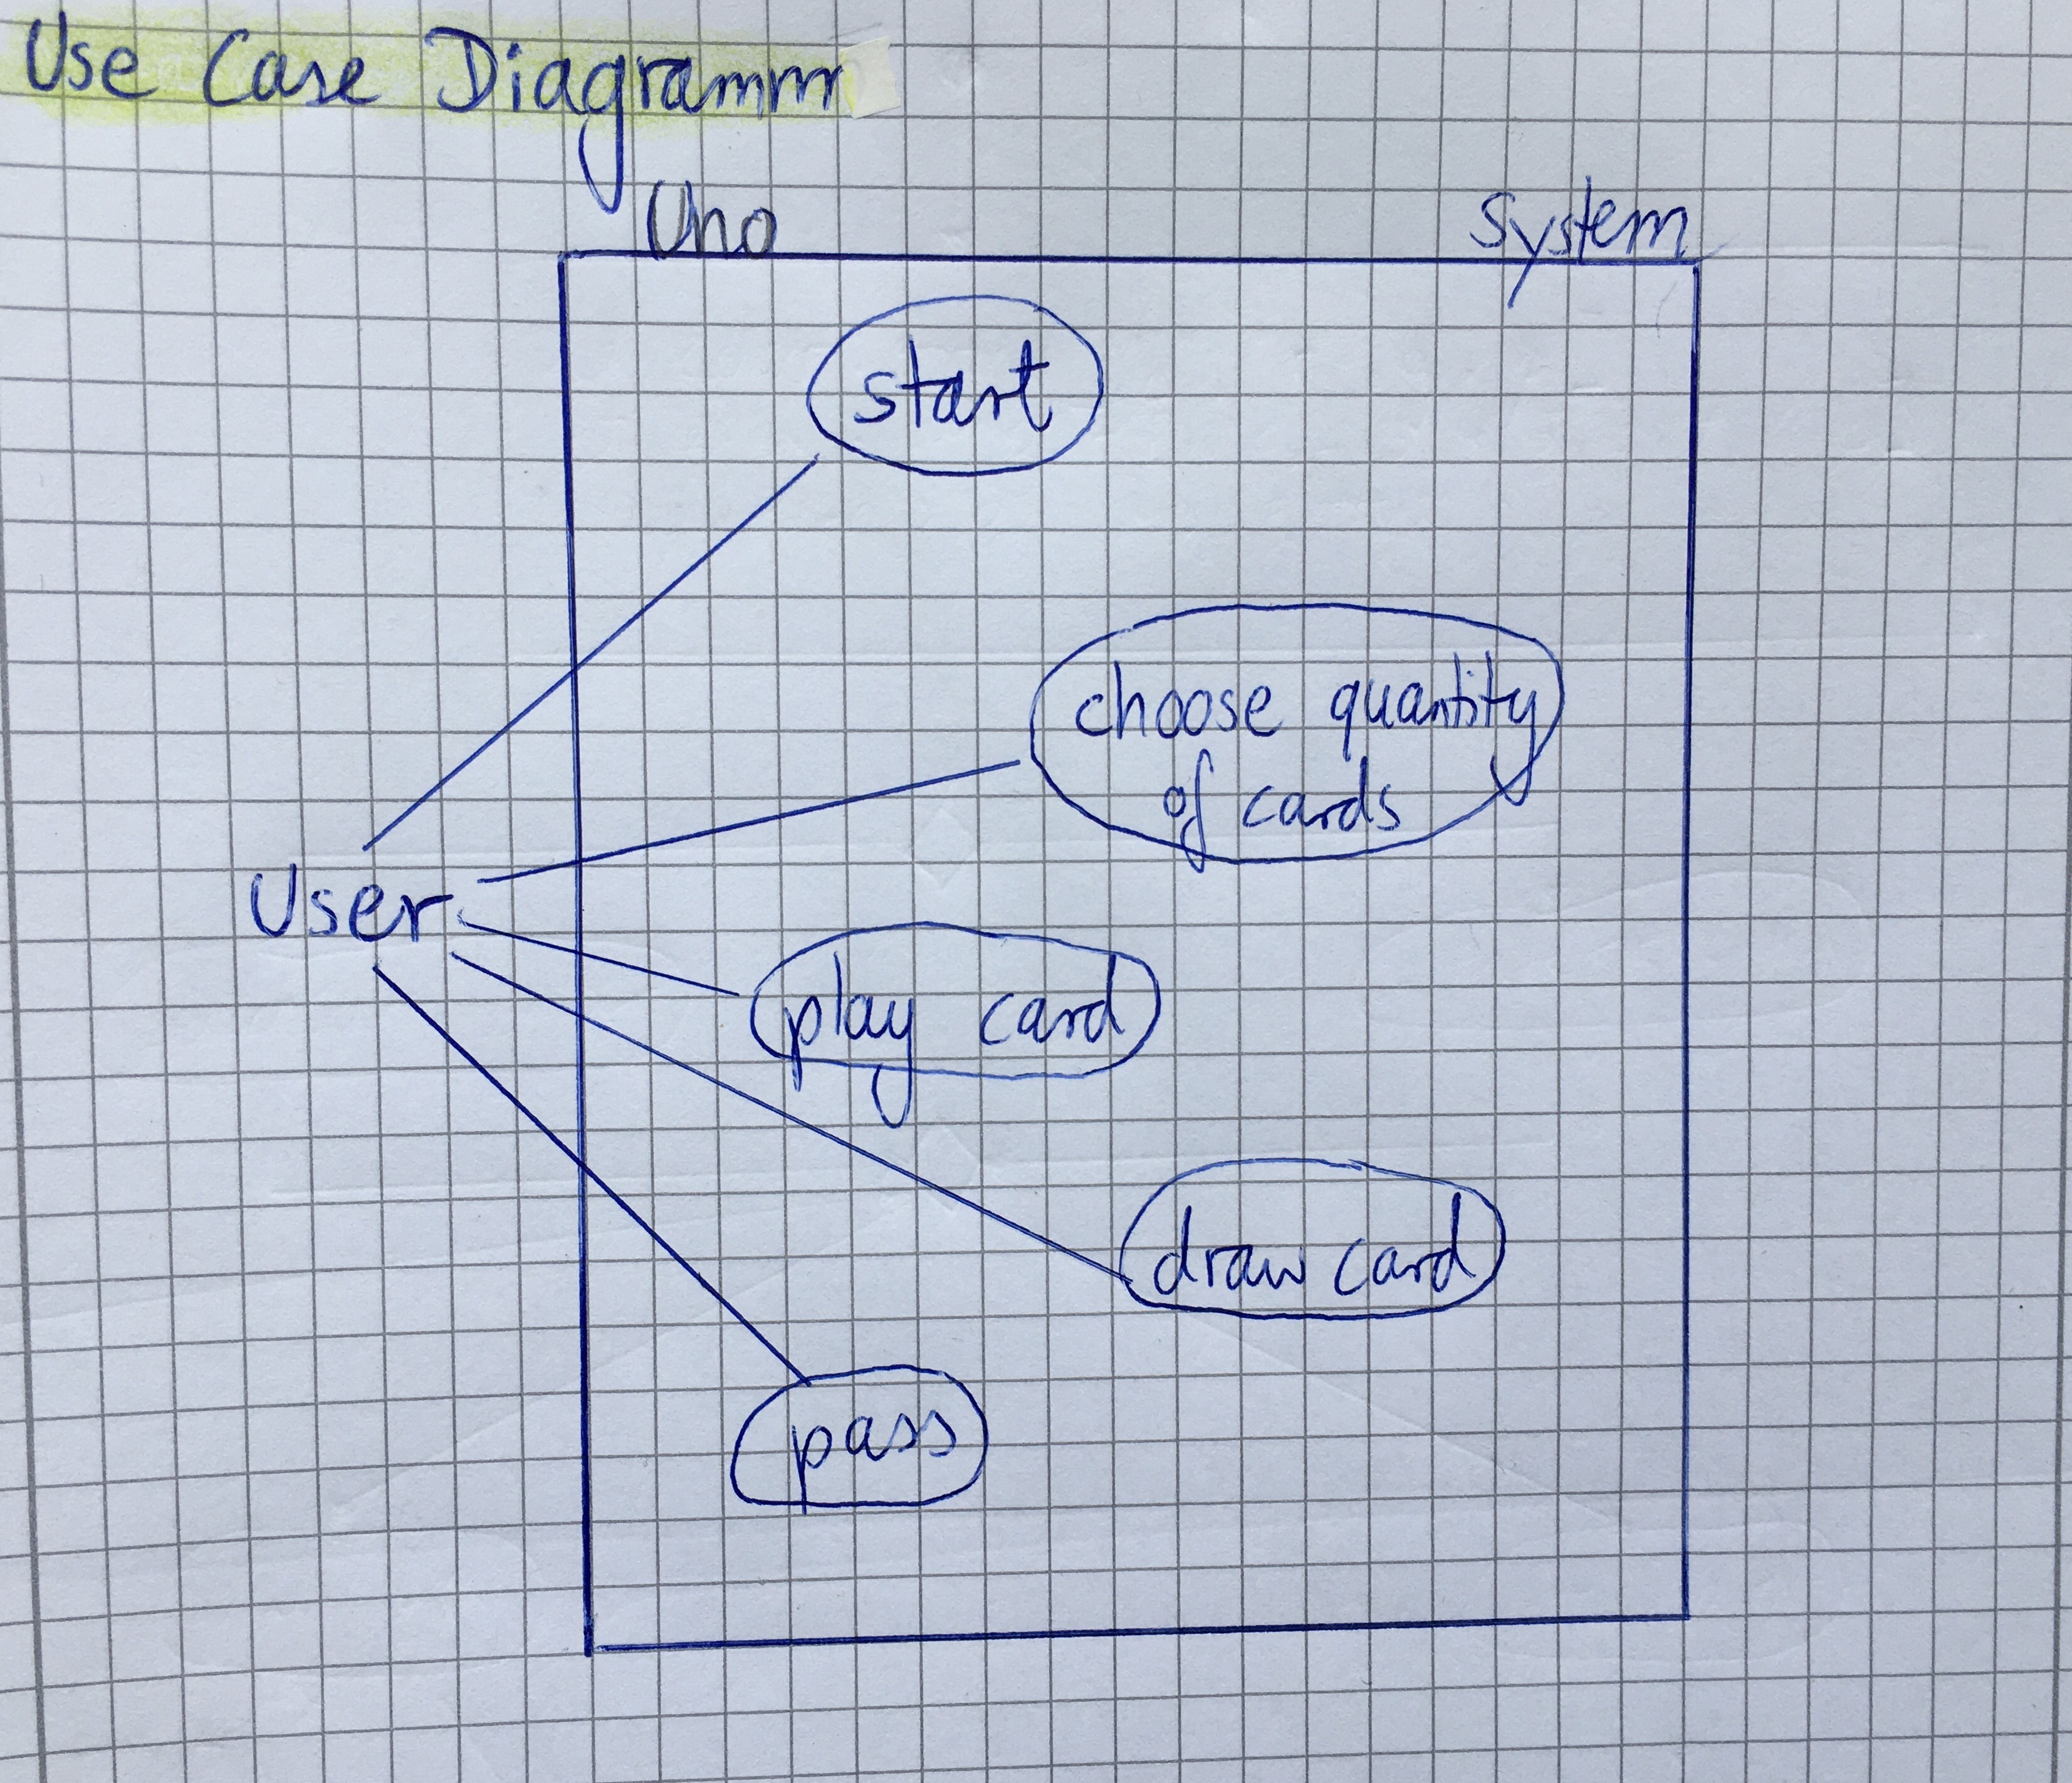 Use Case Diagramm
Uno System
start
choose quantity
of cards
User
play card
draw card
pass